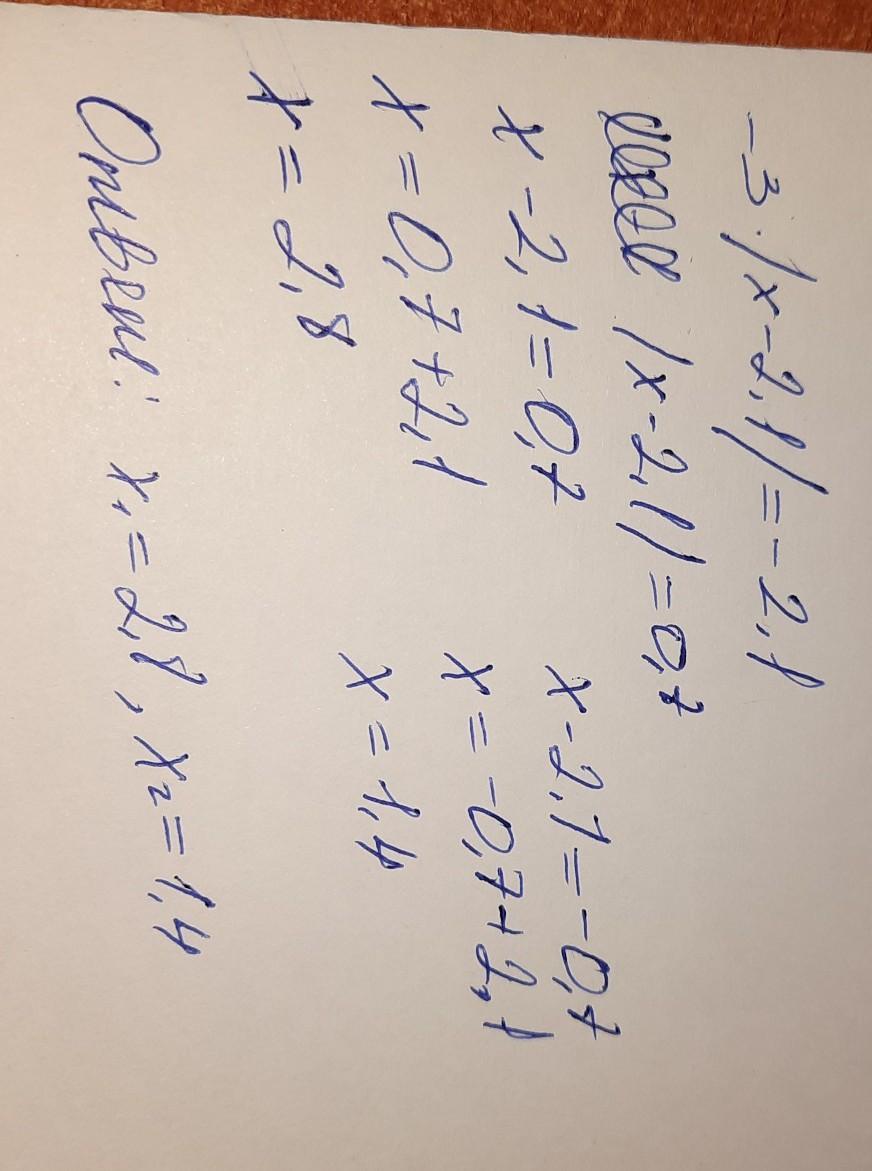 -3·|x-2,1|=-2,1
|x-2,1|=0,7
x-2,1=0,7 x-2,1=-0,7
x=0,7+2,1 x=-0,7+2,1
x=2,8 x=1,4
Ответ: x₁=2,8, x₂=1,4